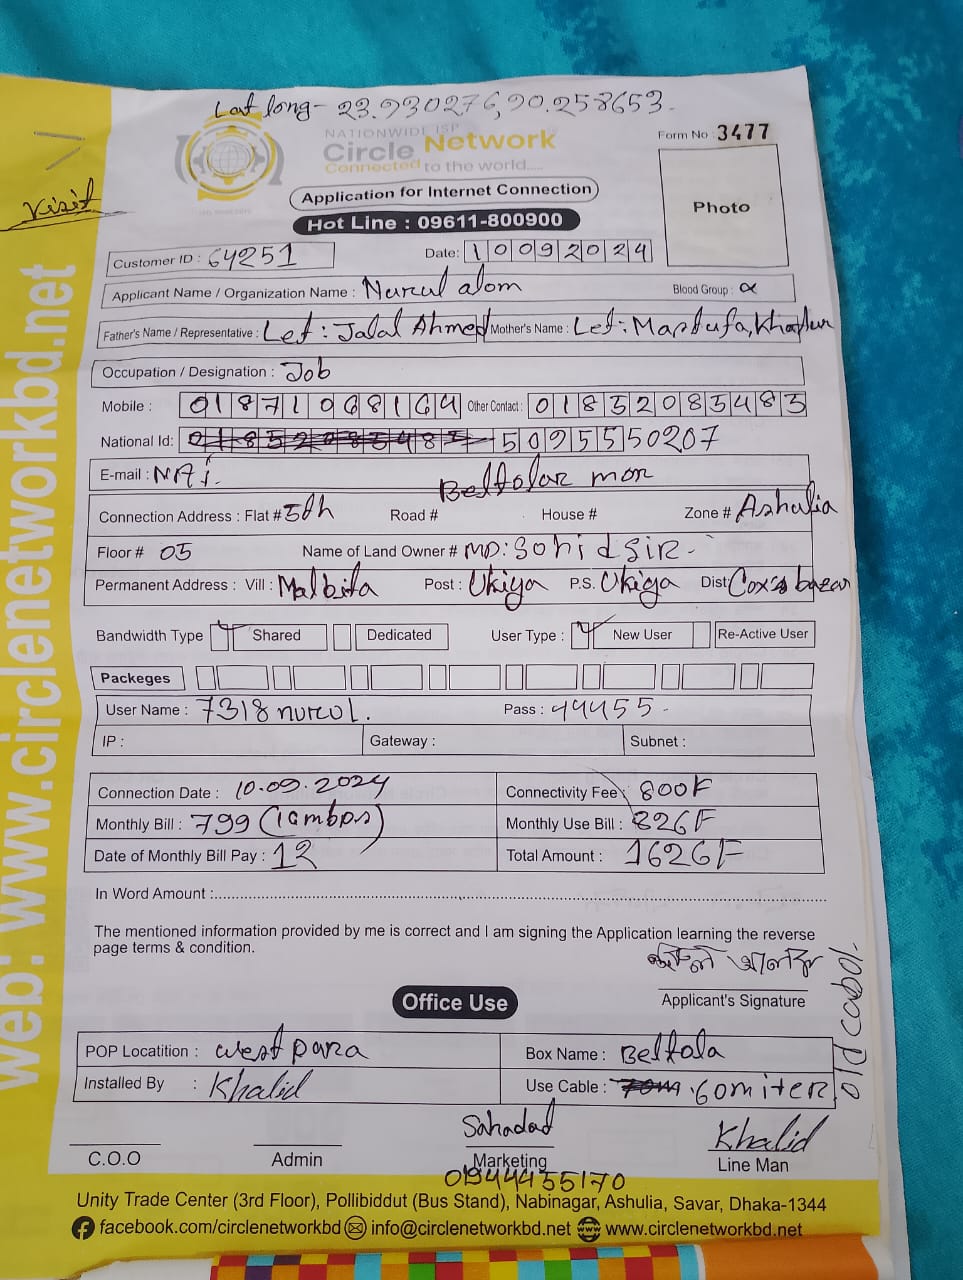 Lat long - 23.930276, 90.258653.
NATIONWIDE ISP
Circle Network
Connected to the world.....
Form No : 3477
Visit
Application for Internet Connection
Photo
Hot Line : 09611-800900
Customer ID : 64251 Date: 10092024
Applicant Name / Organization Name : Nurul alom Blood Group :
Father's Name / Representative : Let: Jalal Ahmed Mother's Name : Let: Mastufa, Khatun
Occupation / Designation : Job
Mobile : 01871068164 Other Contact : 01832085483
National Id: 5095550207
E-mail : NAi.
Beltolar mor
Connection Address : Flat # 5th Road # House # Zone # Ashulia
Floor # 05 Name of Land Owner # MD: Sohid Sir -
Permanent Address : Vill : Malbita Post : Ukiya P.S. Ukiya Dist Cox's bazar
Bandwidth Type Shared Dedicated User Type : New User Re-Active User
Packeges
User Name : 7318nurul. Pass : 44455 -
IP : Gateway : Subnet :
Connection Date : 10.09.2024 Connectivity Fee : 800F
Monthly Bill : 799 (10mbps) Monthly Use Bill : 826F
Date of Monthly Bill Pay : 12 Total Amount : 1626F
In Word Amount :
The mentioned information provided by me is correct and I am signing the Application learning the reverse
page terms & condition.
Applicant's Signature
Office Use
POP Locatition : West para Box Name : Beltola
Installed By : Khalid Use Cable : 60miter
old cabol.
Sahadad Khalid
C.O.O Admin Marketing Line Man
01944455170
Unity Trade Center (3rd Floor), Pollibiddut (Bus Stand), Nabinagar, Ashulia, Savar, Dhaka-1344
facebook.com/circlenetworkbd info@circlenetworkbd.net www.circlenetworkbd.net
web: www.circlenetworkbd.net